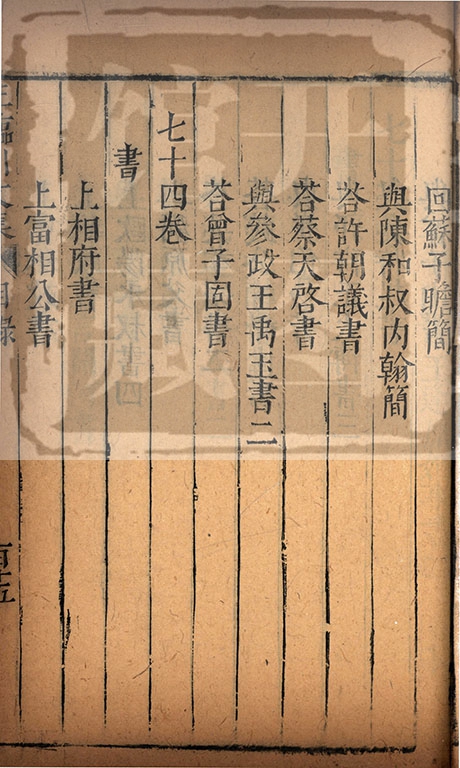 回蘇子瞻簡
與陳和叔内翰簡
荅許朝議書
荅蔡天啓書
與參政王禹玉書二
荅曾子固書
七十四卷
書
上相府書
上富相公書
目錄
百十五